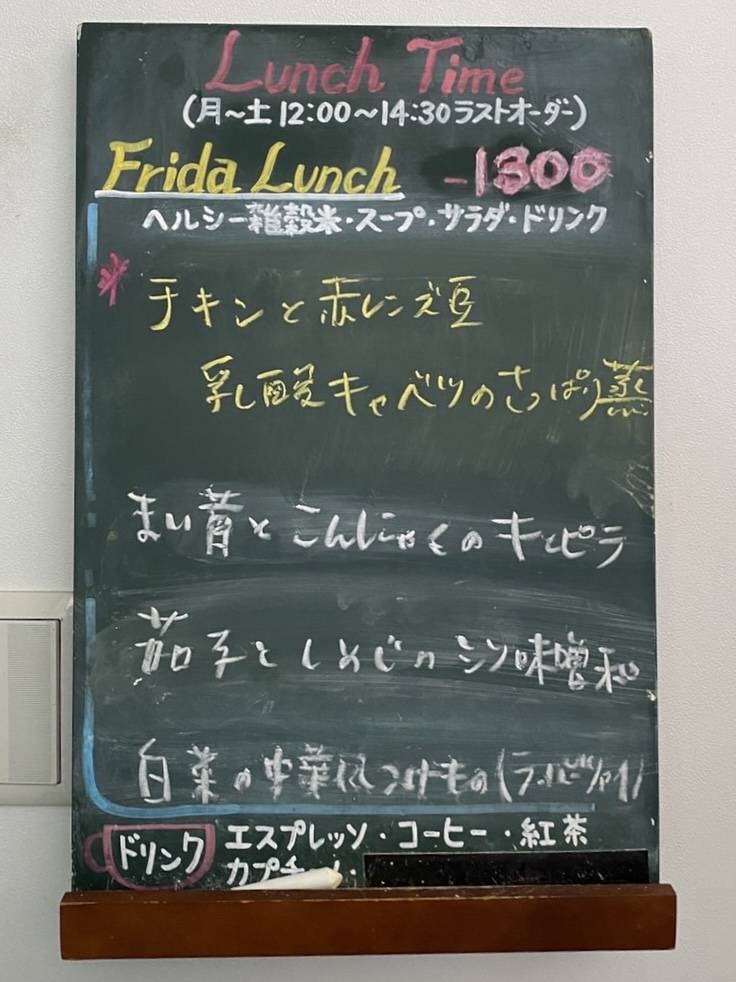 Lunch Time
(月~土 12:00~14:30ラストオーダー)
Frida Lunch -1300
ヘルシー雑穀米・スープ・サラダ・ドリンク
* チキンと赤レンズ豆
乳酸キャベツのさっぱり蒸
まい茸とこんにゃくのキンピラ
茄子としめじのシソ味噌和
白菜の中華風つけもの(ラーパーツァイ)
ドリンク エスプレッソ・コーヒー・紅茶